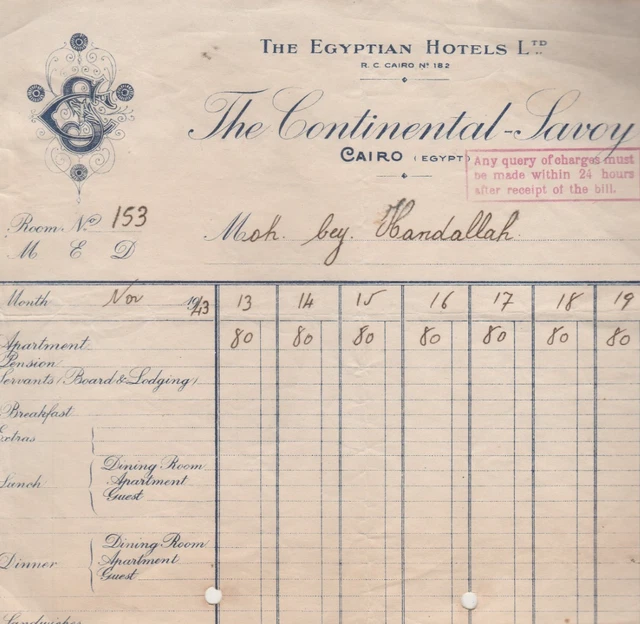 THE EGYPTIAN HOTELS LTD
R. C. CAIRO Nº 182
The Continental-Savoy
CAIRO (EGYPT)
Any query of charges must
be made within 24 hours
after receipt of the bill.
Room Nº 153
M E D
Moh. bey. Handallah.
Month Nov 1943 13 14 15 16 17 18 19
Apartment 80 80 80 80 80 80 80
Pension
Servants (Board & Lodging)
Breakfast
Extras
Dining Room
Lunch Apartment
Guest
Dining Room
Dinner Apartment
Guest
Sandwiches